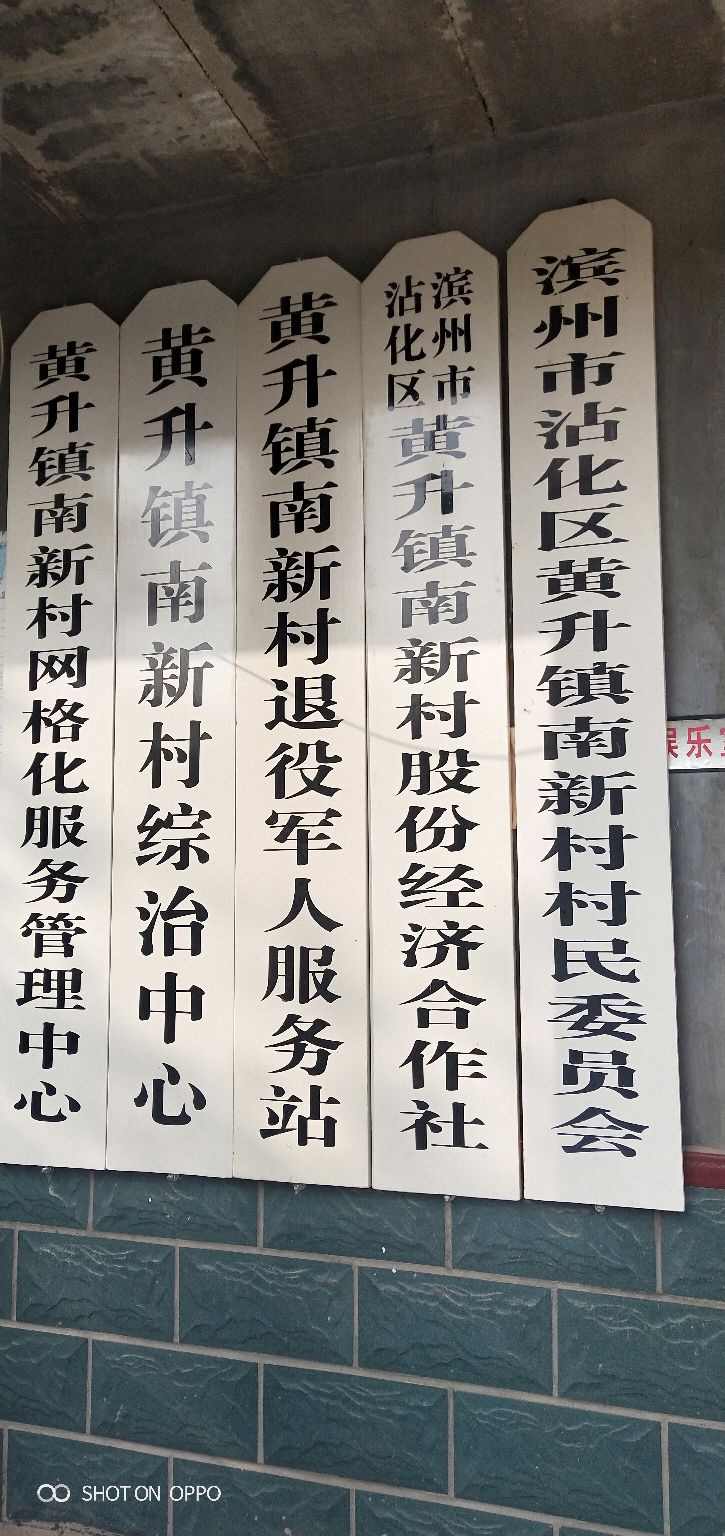 滨州市沾化区黄升镇南新村村民委员会
滨州市
沾化区
黄升镇南新村股份经济合作社
黄升镇南新村退役军人服务站
黄升镇南新村综治中心
黄升镇南新村网格化服务管理中心
娱乐室
SHOT ON OPPO